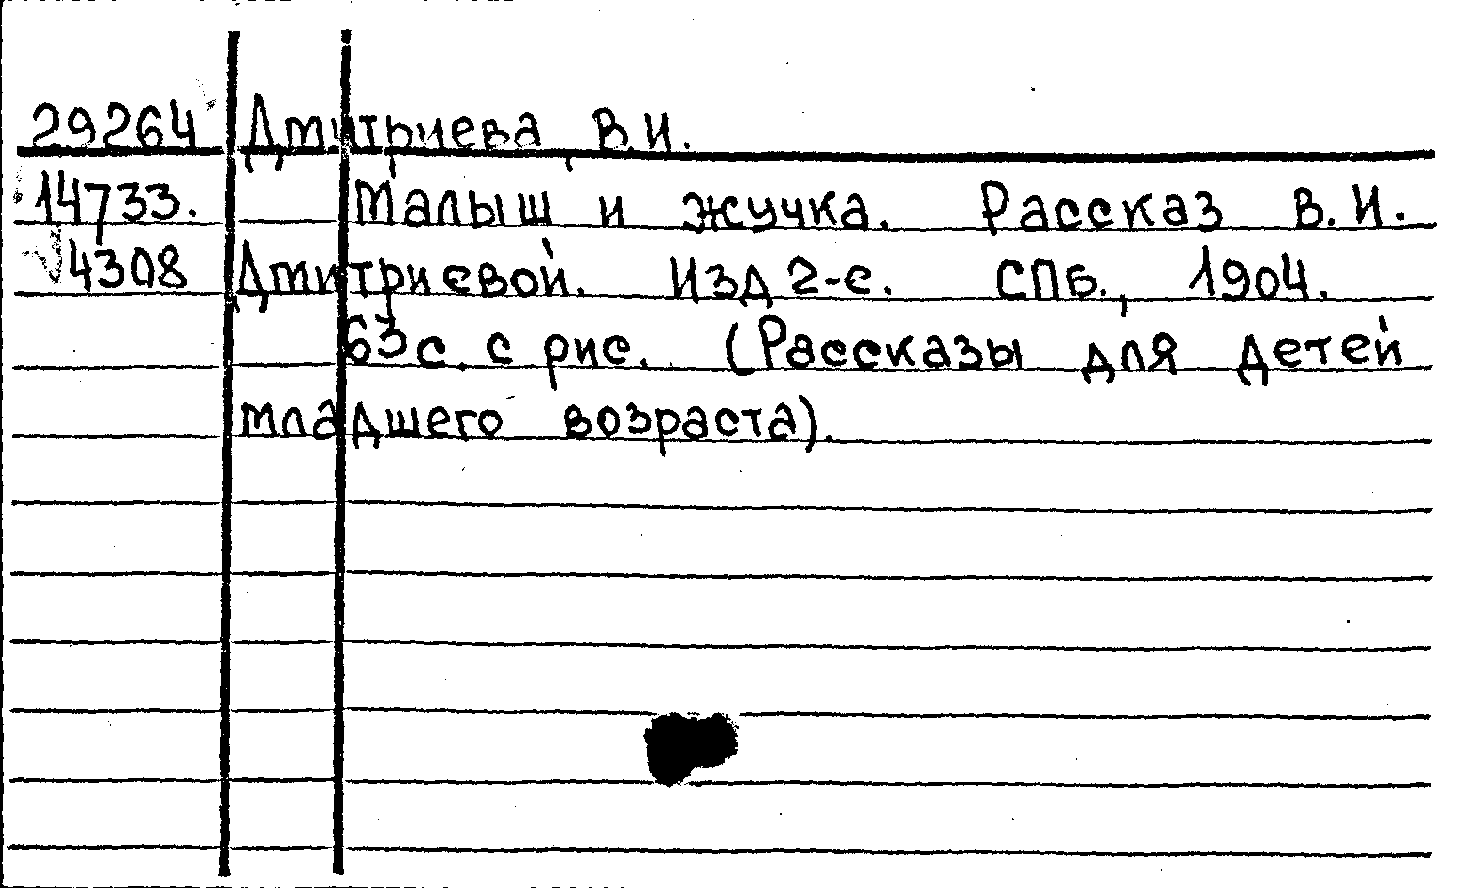 29264 Дмитриева, В.И.
14733. Малыш и жучка. Рассказ В.И.
4308 Дмитриевой. Изд 2-е. СПб., 1904.
63с. с рис. (Рассказы для детей
младшего возраста).